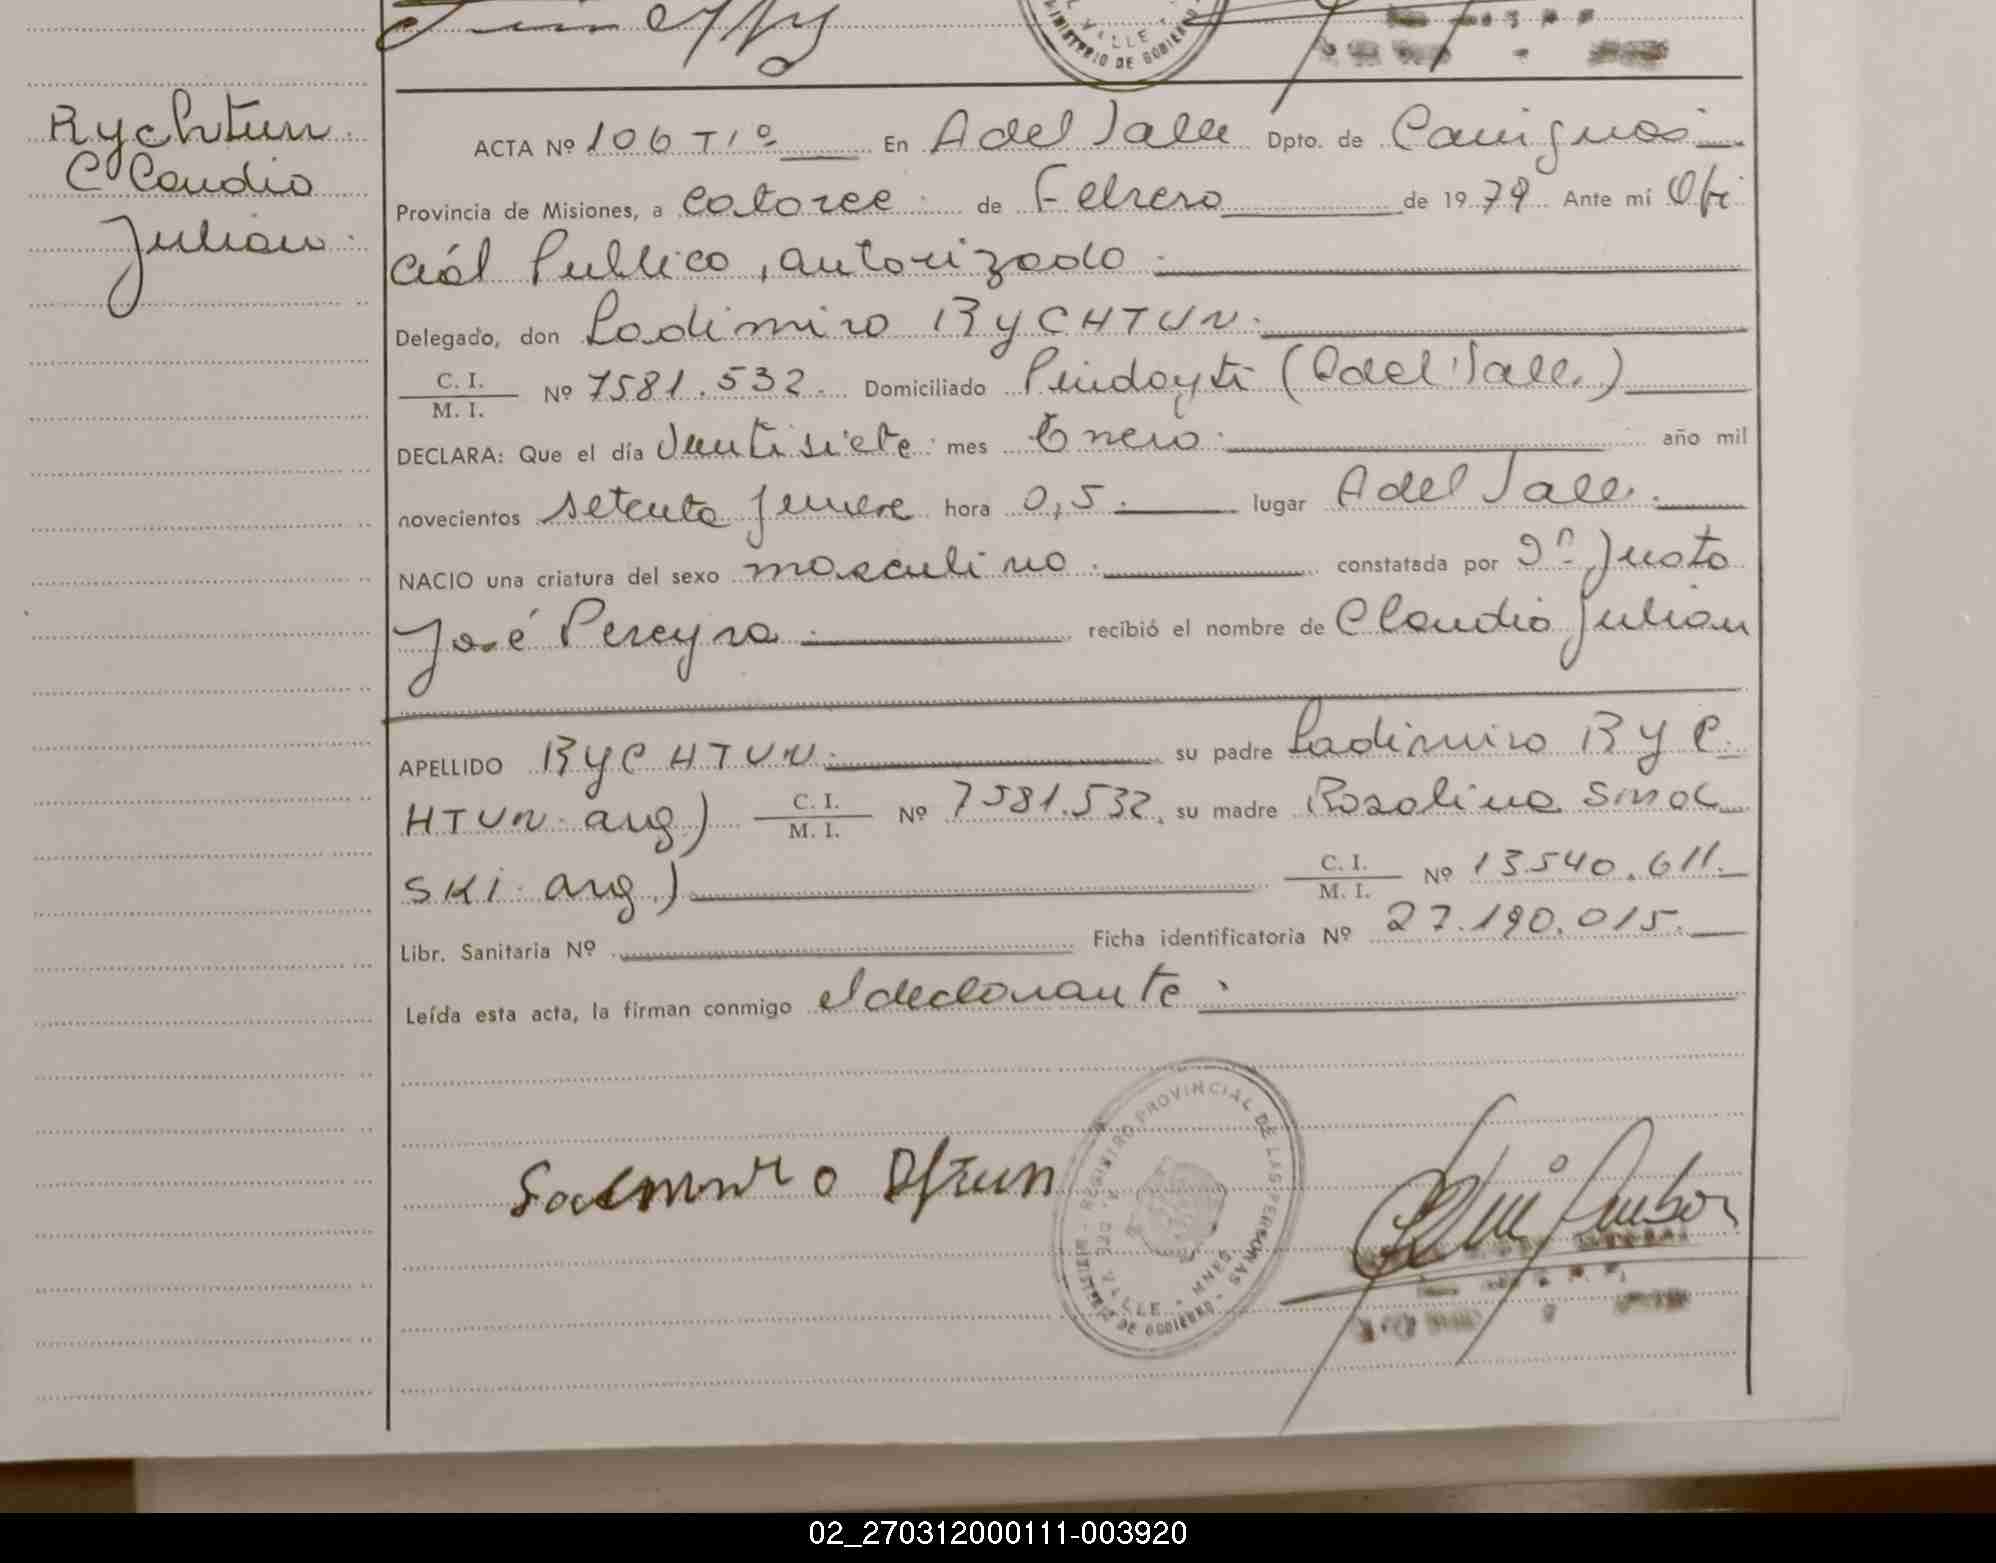 VALLE
MINISTERIO DE GOBIERNO
Rychtun
Claudio
Julian
ACTA Nº 106 T1º En A del Valle Dpto. de Cainguas
Provincia de Misiones, a catorce de Febrero de 1979 Ante mí Ofi
cial Publico, autorizado
Delegado, don Ladimiro RYCHTUN.
C. I.
M. I. Nº 7581.532. Domiciliado Pindayti (A del Valle)
DECLARA: Que el día Veintisiete mes Enero año mil
novecientos setenta y nueve hora 0,5. lugar A del Valle.
NACIO una criatura del sexo masculino. constatada por Dn. Justo
José Pereyra recibió el nombre de Claudio Julian
APELLIDO RYCHTUN su padre Ladimiro RYC
HTUN arg) C. I. M. I. Nº 7581.532, su madre Rosalina SMOL
SKI arg.) C. I. M. I. Nº 13.540.611.
Libr. Sanitaria Nº Ficha identificatoria Nº 27.190.015.
Leída esta acta, la firman conmigo el declarante.
REGISTRO PROVINCIAL DE LAS PERSONAS
MINISTERIO DE GOBIERNO
VALLE - MNES
02_270312000111-003920